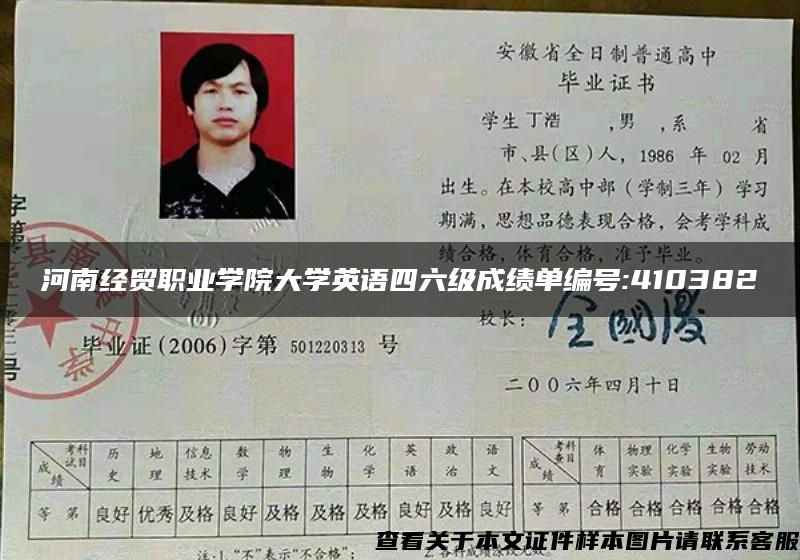 安徽省全日制普通高中
毕业证书
学生丁浩 ,男 ,系 省
市、县(区)人, 1986 年 02 月
出生。在本校高中部（学制三年）学习
期满，思想品德表现合格，会考学科成
绩合格，体育合格，准予毕业。
河南经贸职业学院大学英语四六级成绩单编号:410382
校长：
毕业证(2006)字第 501220313 号
二〇〇六年四月十日
考试科目 历史 地理 信息技术 数学 物理 生物 化学 英语 政治 语文
成绩
等第 良好 优秀 及格 良好 及格 及格 及格 良好 及格 良好
考查科目 体育 物理实验 化学实验 生物实验 劳动技术
成绩
等第 合格 合格 合格 合格 合格
注:1."不"表示"不合格";
2.各科成绩涂改无效。
查看关于本文证件样本图片请联系客服